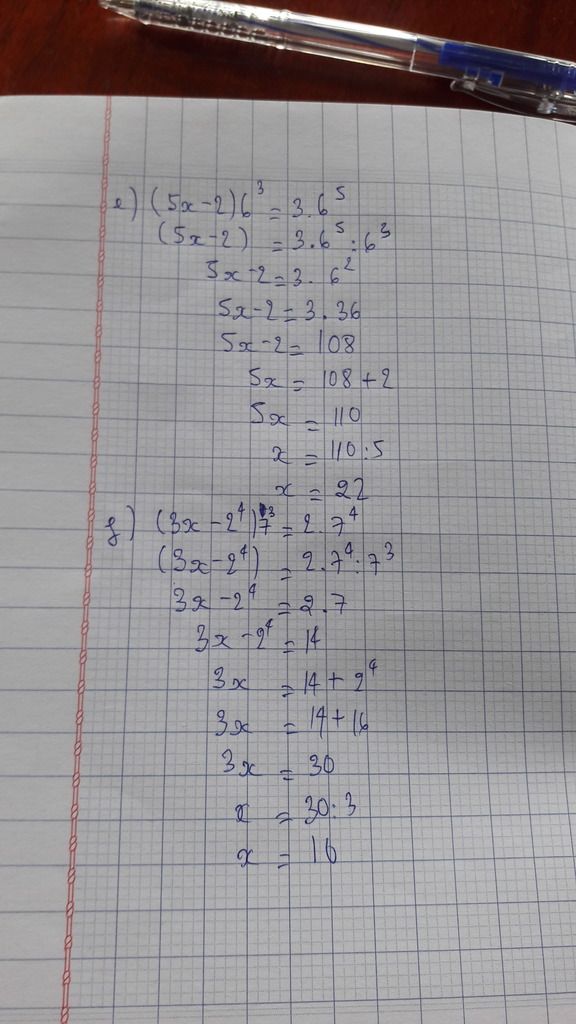 e) (5x-2)6³ = 3.6⁵
(5x-2) = 3.6⁵:6³
5x-2 = 3.6²
5x-2 = 3.36
5x-2 = 108
5x = 108+2
5x = 110
x = 110:5
x = 22
g) (3x-2⁴)7³ = 2.7⁴
(3x-2⁴) = 2.7⁴:7³
3x-2⁴ = 2.7
3x-2⁴ = 14
3x = 14+2⁴
3x = 14+16
3x = 30
x = 30:3
x = 16